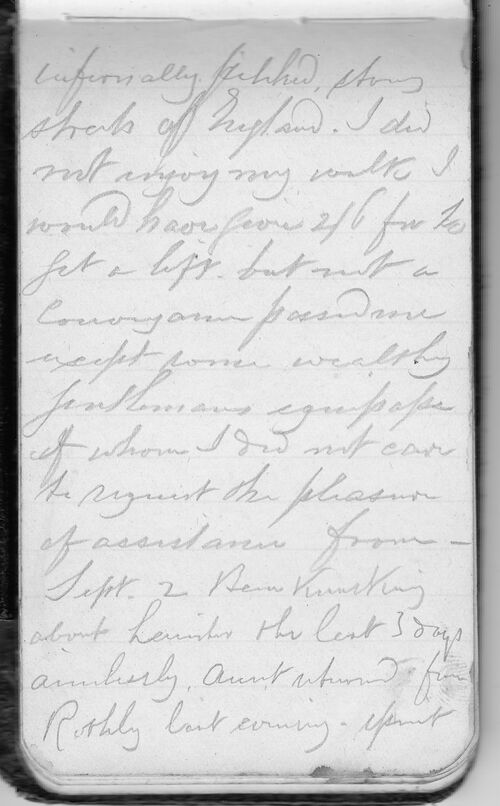 infernally pitched, stony
streets of England. I did
not enjoy my walk I
would have given 2/6 for to
get a lift. but not a
conveyance passed me
except some wealthy
gentlemans equipage
of whom I did not care
to request the pleasure
of assistance from -
Sept. 2 Been
about Leicester the last 3 days
aimlessly. Aunt returned from
Rothley last evening - spent